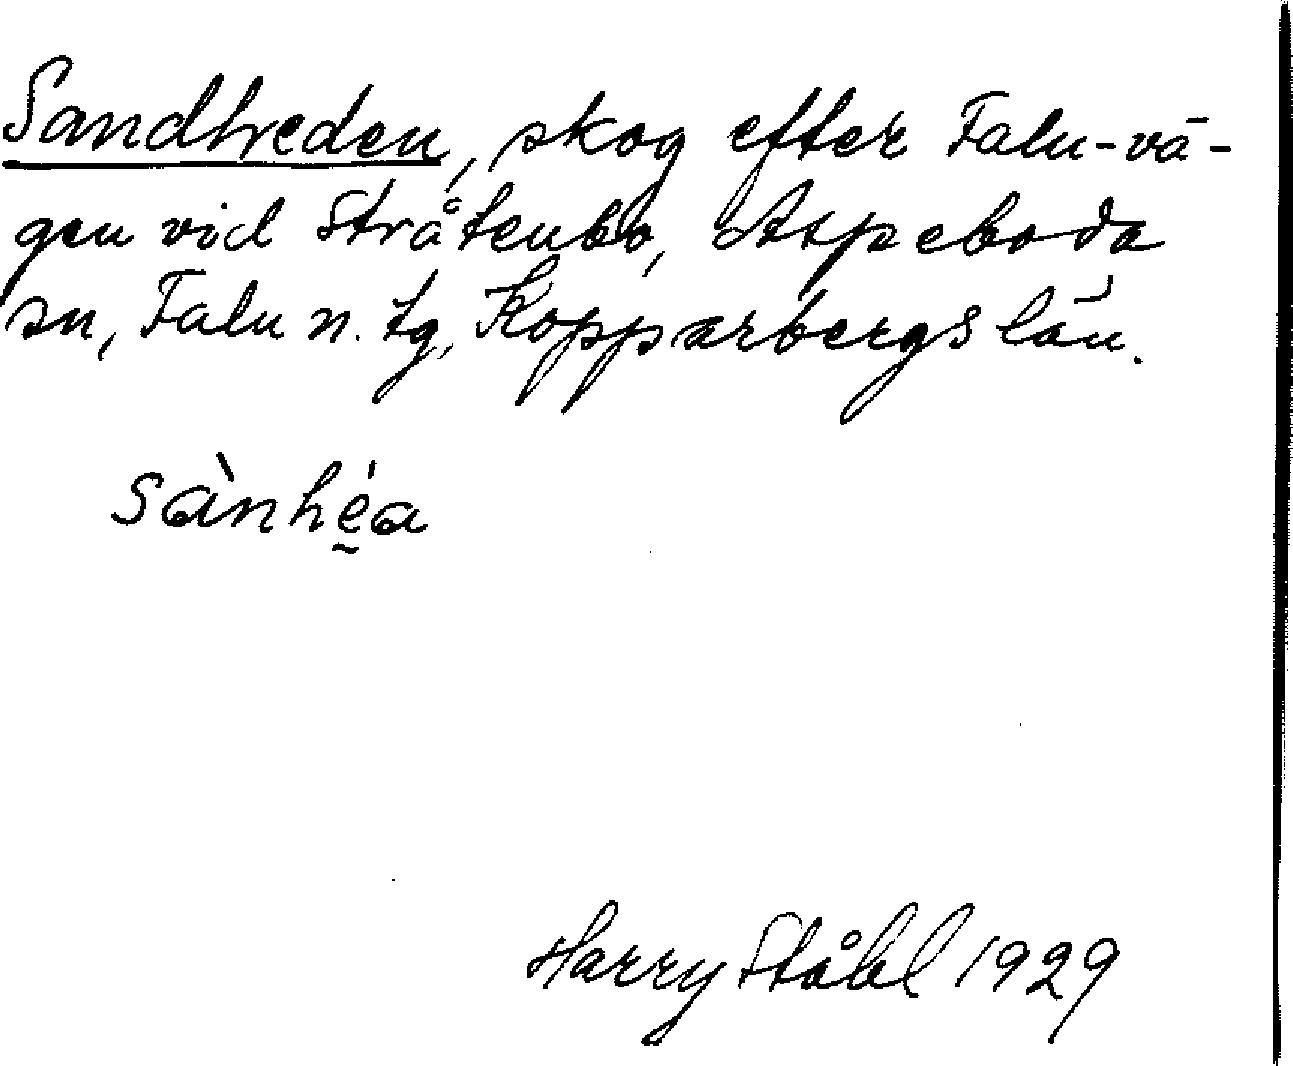 Sandheden, skog efter Falu-vä-
gen vid Stråtenbo, Aspeboda
sn, Falu n. tg, Kopparbergs län.
sànhé̬a
Harry Ståhl 1929